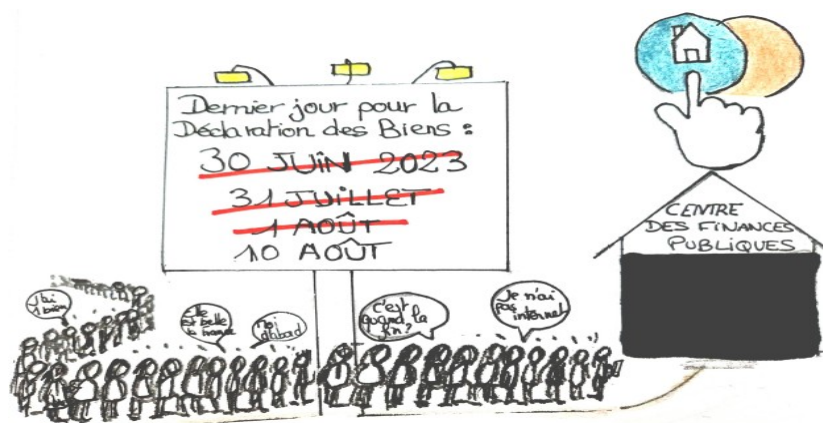 Dernier jour pour la
Déclaration des Biens :
30 JUIN 2023
31 JUILLET
1 AOÛT
10 AOÛT
CENTRE
DES FINANCES
PUBLIQUES
J'ai
1 bien
Elle
est belle
la France
moi
d'abord
C'est
quand la
fin ?
Je n'ai
pas
internet